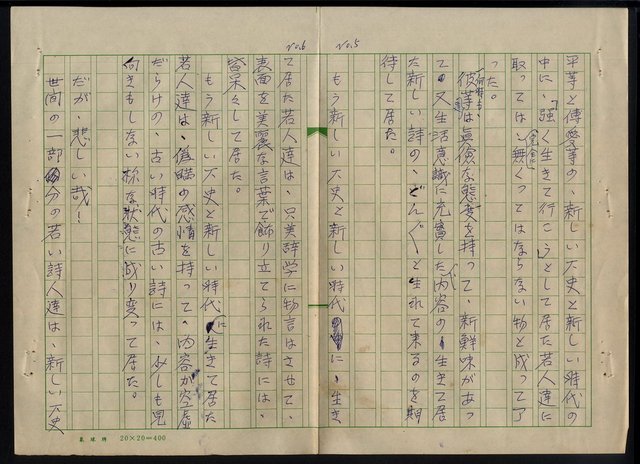 No.5
平等と博愛等の、新しい歴史と新しい時代の
中に、強く生きて行こうとして居た若人達に
取っては、完全に無くってはならない物と成って了
った。
彼等は、何時も、真倹な態度を持って、新鮮味があっ
て、又生活意識に充実した、内容の、生きて居
た新しい詩の、どんぐと生れて来るのを期
待して居た。
もう新しい歴史と新しい時代に、生き
No.6
て居た若人達は、只美辞学に物言はさせて、
表面を美麗な言葉で飾り立てられた詩には、
皆呆々して居た。
もう新しい歴史と新しい時代に生きて居た
若人達は、偽瞞の感情を持って、内容が空虚
だらけの、古い時代の古い詩には、少しも見
向きもしない様な状態に成り変って居た。
だが、悲しい哉!
世間の一部分の若い詩人達は、新しい歴史
20×20=400